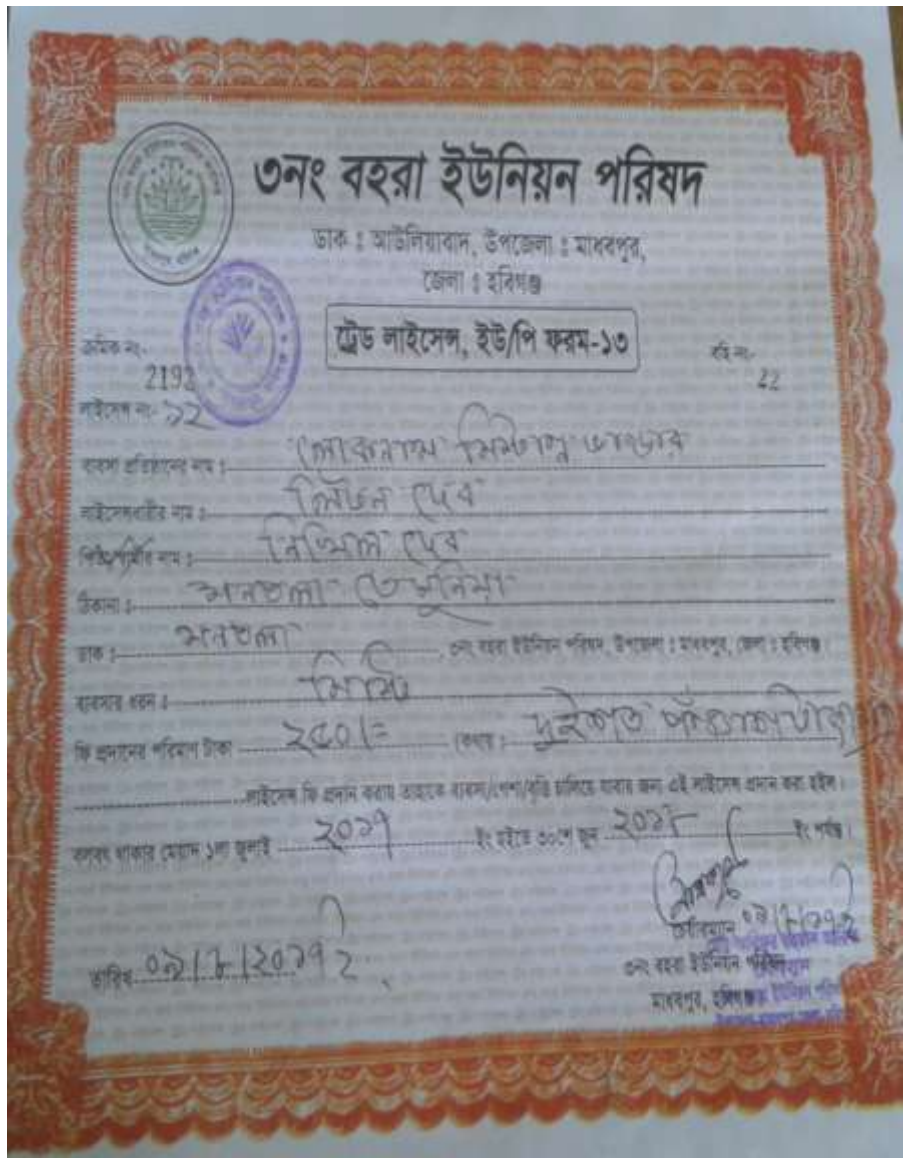 ৩নং বহরা ইউনিয়ন পরিষদ
ডাক : আউলিয়াবাদ, উপজেলা : মাধবপুর,
জেলা : হবিগঞ্জ
ট্রেড লাইসেন্স, ইউ/পি ফরম-১৩
ক্রমিক নং- 2192
বহি নং- 22
লাইসেন্স নং- ১২
ব্যবসা প্রতিষ্ঠানের নাম : লোকনাথ মিষ্টান্ন ভান্ডার
লাইসেন্সধারীর নাম : লিটন দেব
পিতা/স্বামীর নাম : নিখিল দেব
ঠিকানা : মনতলা তেমুনিয়া
ডাক : মনতলা , ৩নং বহরা ইউনিয়ন পরিষদ, উপজেলা : মাধবপুর, জেলা : হবিগঞ্জ।
ব্যবসার ধরন : মিষ্টি
ফি প্রদানের পরিমাণ টাকা ২৫০/= (কথায় : দুইশত পঞ্চাশ টাকা)
লাইসেন্স ফি প্রদান করায় তাহাকে ব্যবসা/পেশা/বৃত্তি চালিয়ে যাবার জন্য এই লাইসেন্স প্রদান করা হইল।
বলবৎ থাকার মেয়াদ ১লা জুলাই ২০১৭ ইং হইতে ৩০শে জুন ২০১৮ ইং পর্যন্ত।
চেয়ারম্যান ০৯/৮/১৭
৩নং বহরা ইউনিয়ন পরিষদ
মাধবপুর, হবিগঞ্জ
তারিখ ০৯/৮/২০১৭